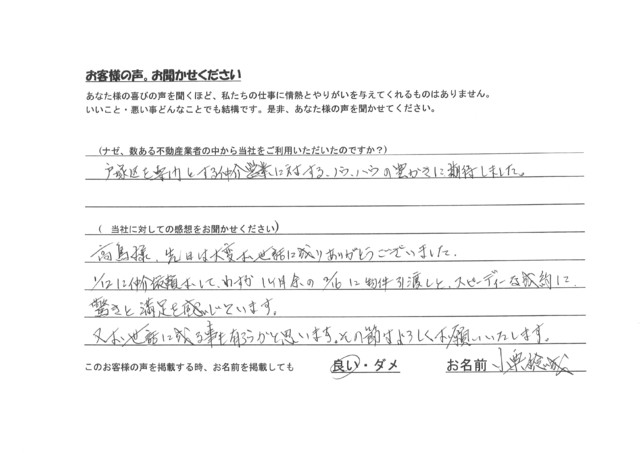 お客様の声。お聞かせください
あなた様の喜びの声を聞くほど、私たちの仕事に情熱とやりがいを与えてくれるものはありません。
いいこと・悪い事どんなことでも結構です。是非、あなた様の声を聞かせてください。
(ナゼ、数ある不動産業者の中から当社をご利用いただいたのですか?)
戸塚区を案内とする仲介営業に対する、ノウ、ハウの豊かさに期待しました。
( 当社に対しての感想をお聞かせください)
高島様、先日は大変お世話に成りありがとうございました。
1/12に仲介依頼して、わずか1ヶ月余の 2/16 に物件引渡しと、スピーディーな成約に、
驚きと満足を感じています。
又お世話に成る事も有ろうかと思います。その節はよろしくお願いいたします。
このお客様の声を掲載する時、お名前を掲載しても 良い・ダメ お名前 小栗